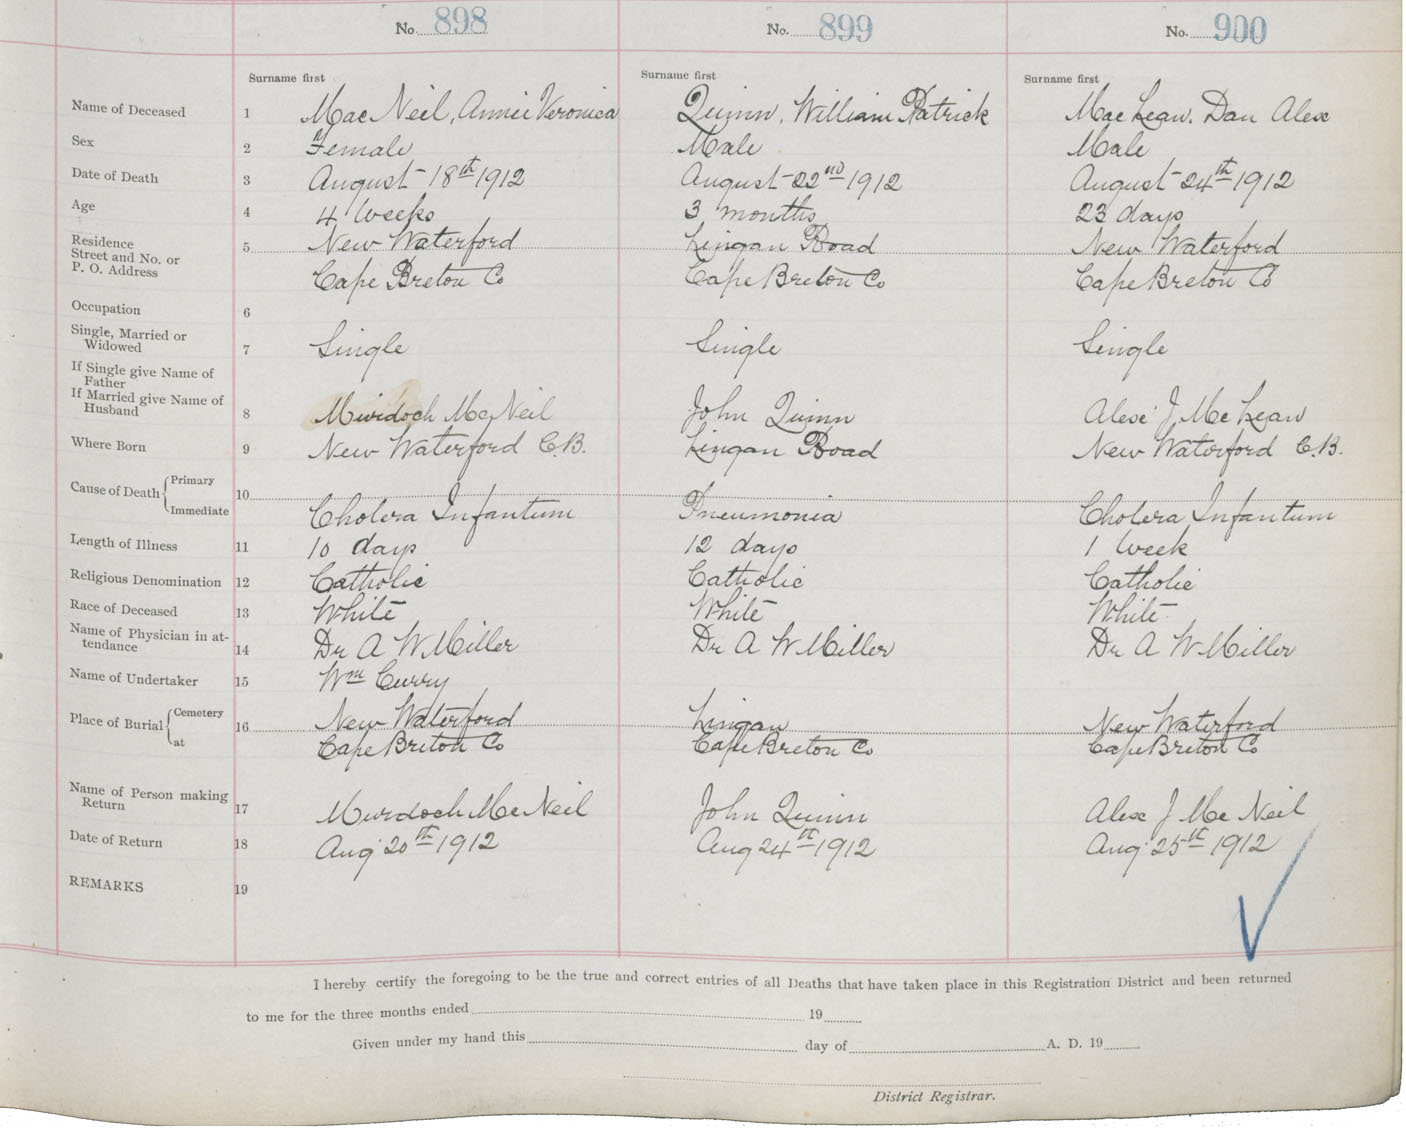 No. 898 No. 899 No. 900
Surname first Surname first Surname first
Name of Deceased 1 MacNeil, Annie Veronica Quinn, William Patrick MacLean, Dan Alex
Sex 2 Female Male Male
Date of Death 3 August 18th 1912 August 22nd 1912 August 24th 1912
Age 4 4 weeks 3 months 23 days
Residence
Street and No. or 5 New Waterford Lingan Road New Waterford
P. O. Address Cape Breton Co Cape Breton Co Cape Breton Co
Occupation 6
Single, Married or
Widowed 7 Single Single Single
If Single give Name of
Father
If Married give Name of
Husband 8 Murdoch McNeil John Quinn Alex J McLean
Where Born 9 New Waterford C.B. Lingan Road New Waterford C.B.
Cause of Death Primary 10
Immediate Cholera Infantum Pneumonia Cholera Infantum
Length of Illness 11 10 days 12 days 1 week
Religious Denomination 12 Catholic Catholic Catholic
Race of Deceased 13 White White White
Name of Physician in at-
tendance 14 Dr A W Miller Dr A W Miller Dr A W Miller
Name of Undertaker 15 Wm Curry
Place of Burial Cemetery 16 New Waterford Lingan New Waterford
at Cape Breton Co Cape Breton Co Cape Breton Co
Name of Person making
Return 17 Murdoch McNeil John Quinn Alex J McNeil
Date of Return 18 Aug 20th 1912 Aug 24th 1912 Aug 25th 1912
REMARKS 19
I hereby certify the foregoing to be the true and correct entries of all Deaths that have taken place in this Registration District and been returned
to me for the three months ended 19
Given under my hand this day of A. D. 19
District Registrar.